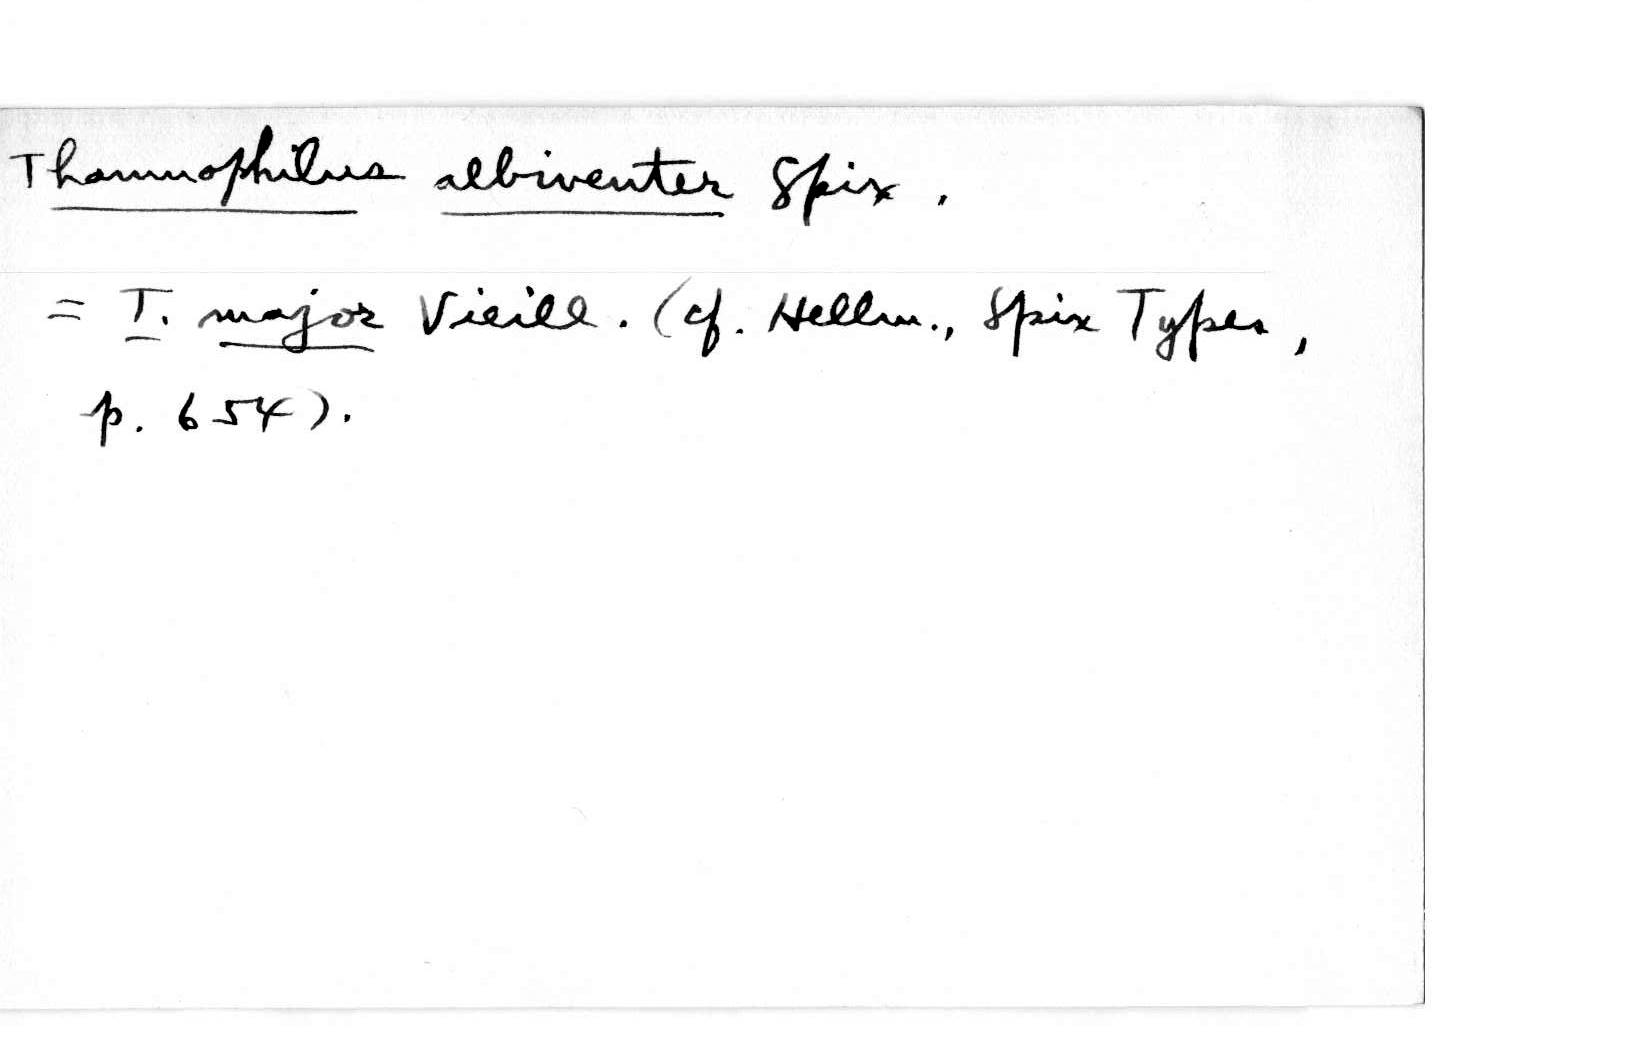 Thamnophilus albiventer Spix.
= T. major Vieill. (cf. Hellm., Spix Types,
p. 654).